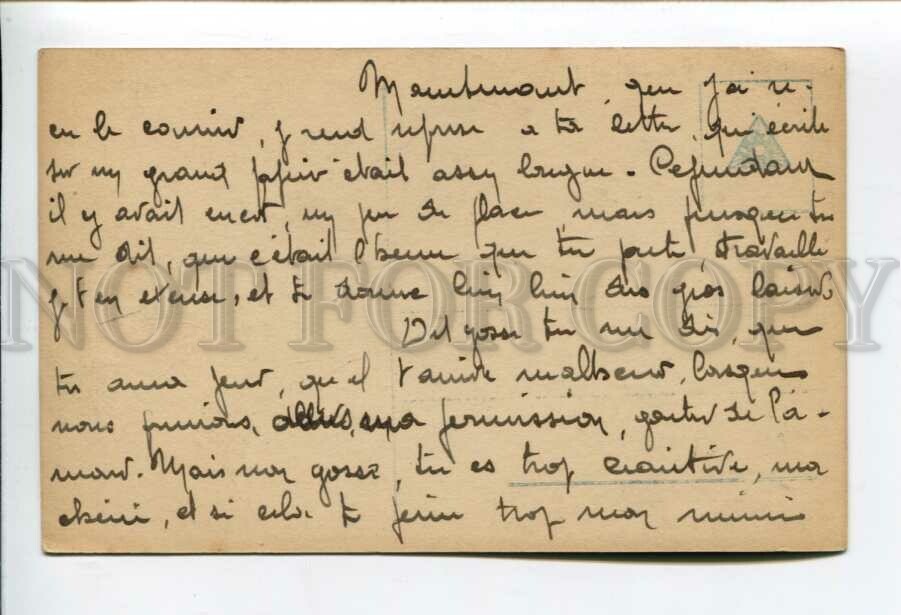 Maintenant, que j'ai re-
çu le courier, je rend reponse a ta lettre, qui écrite
sur un grand papier était assez longue. Cependant
il y avait encor, un peu de place, mais puisque tu
me dit, que c'était l'heure que tu parte, travaille
je t'en excuse, et te donne bien bien des gros baisers
Vel gosse tu me dis, que
tu aura peur, qu'il t'arrive malheur, lorsque
nous pourions, dans, ma permission, gouter de l'a-
mour. Mais mon gosse, tu es trop craintive, ma
chérie, et si cela te peine trop mon mimi
NOT FOR COPY